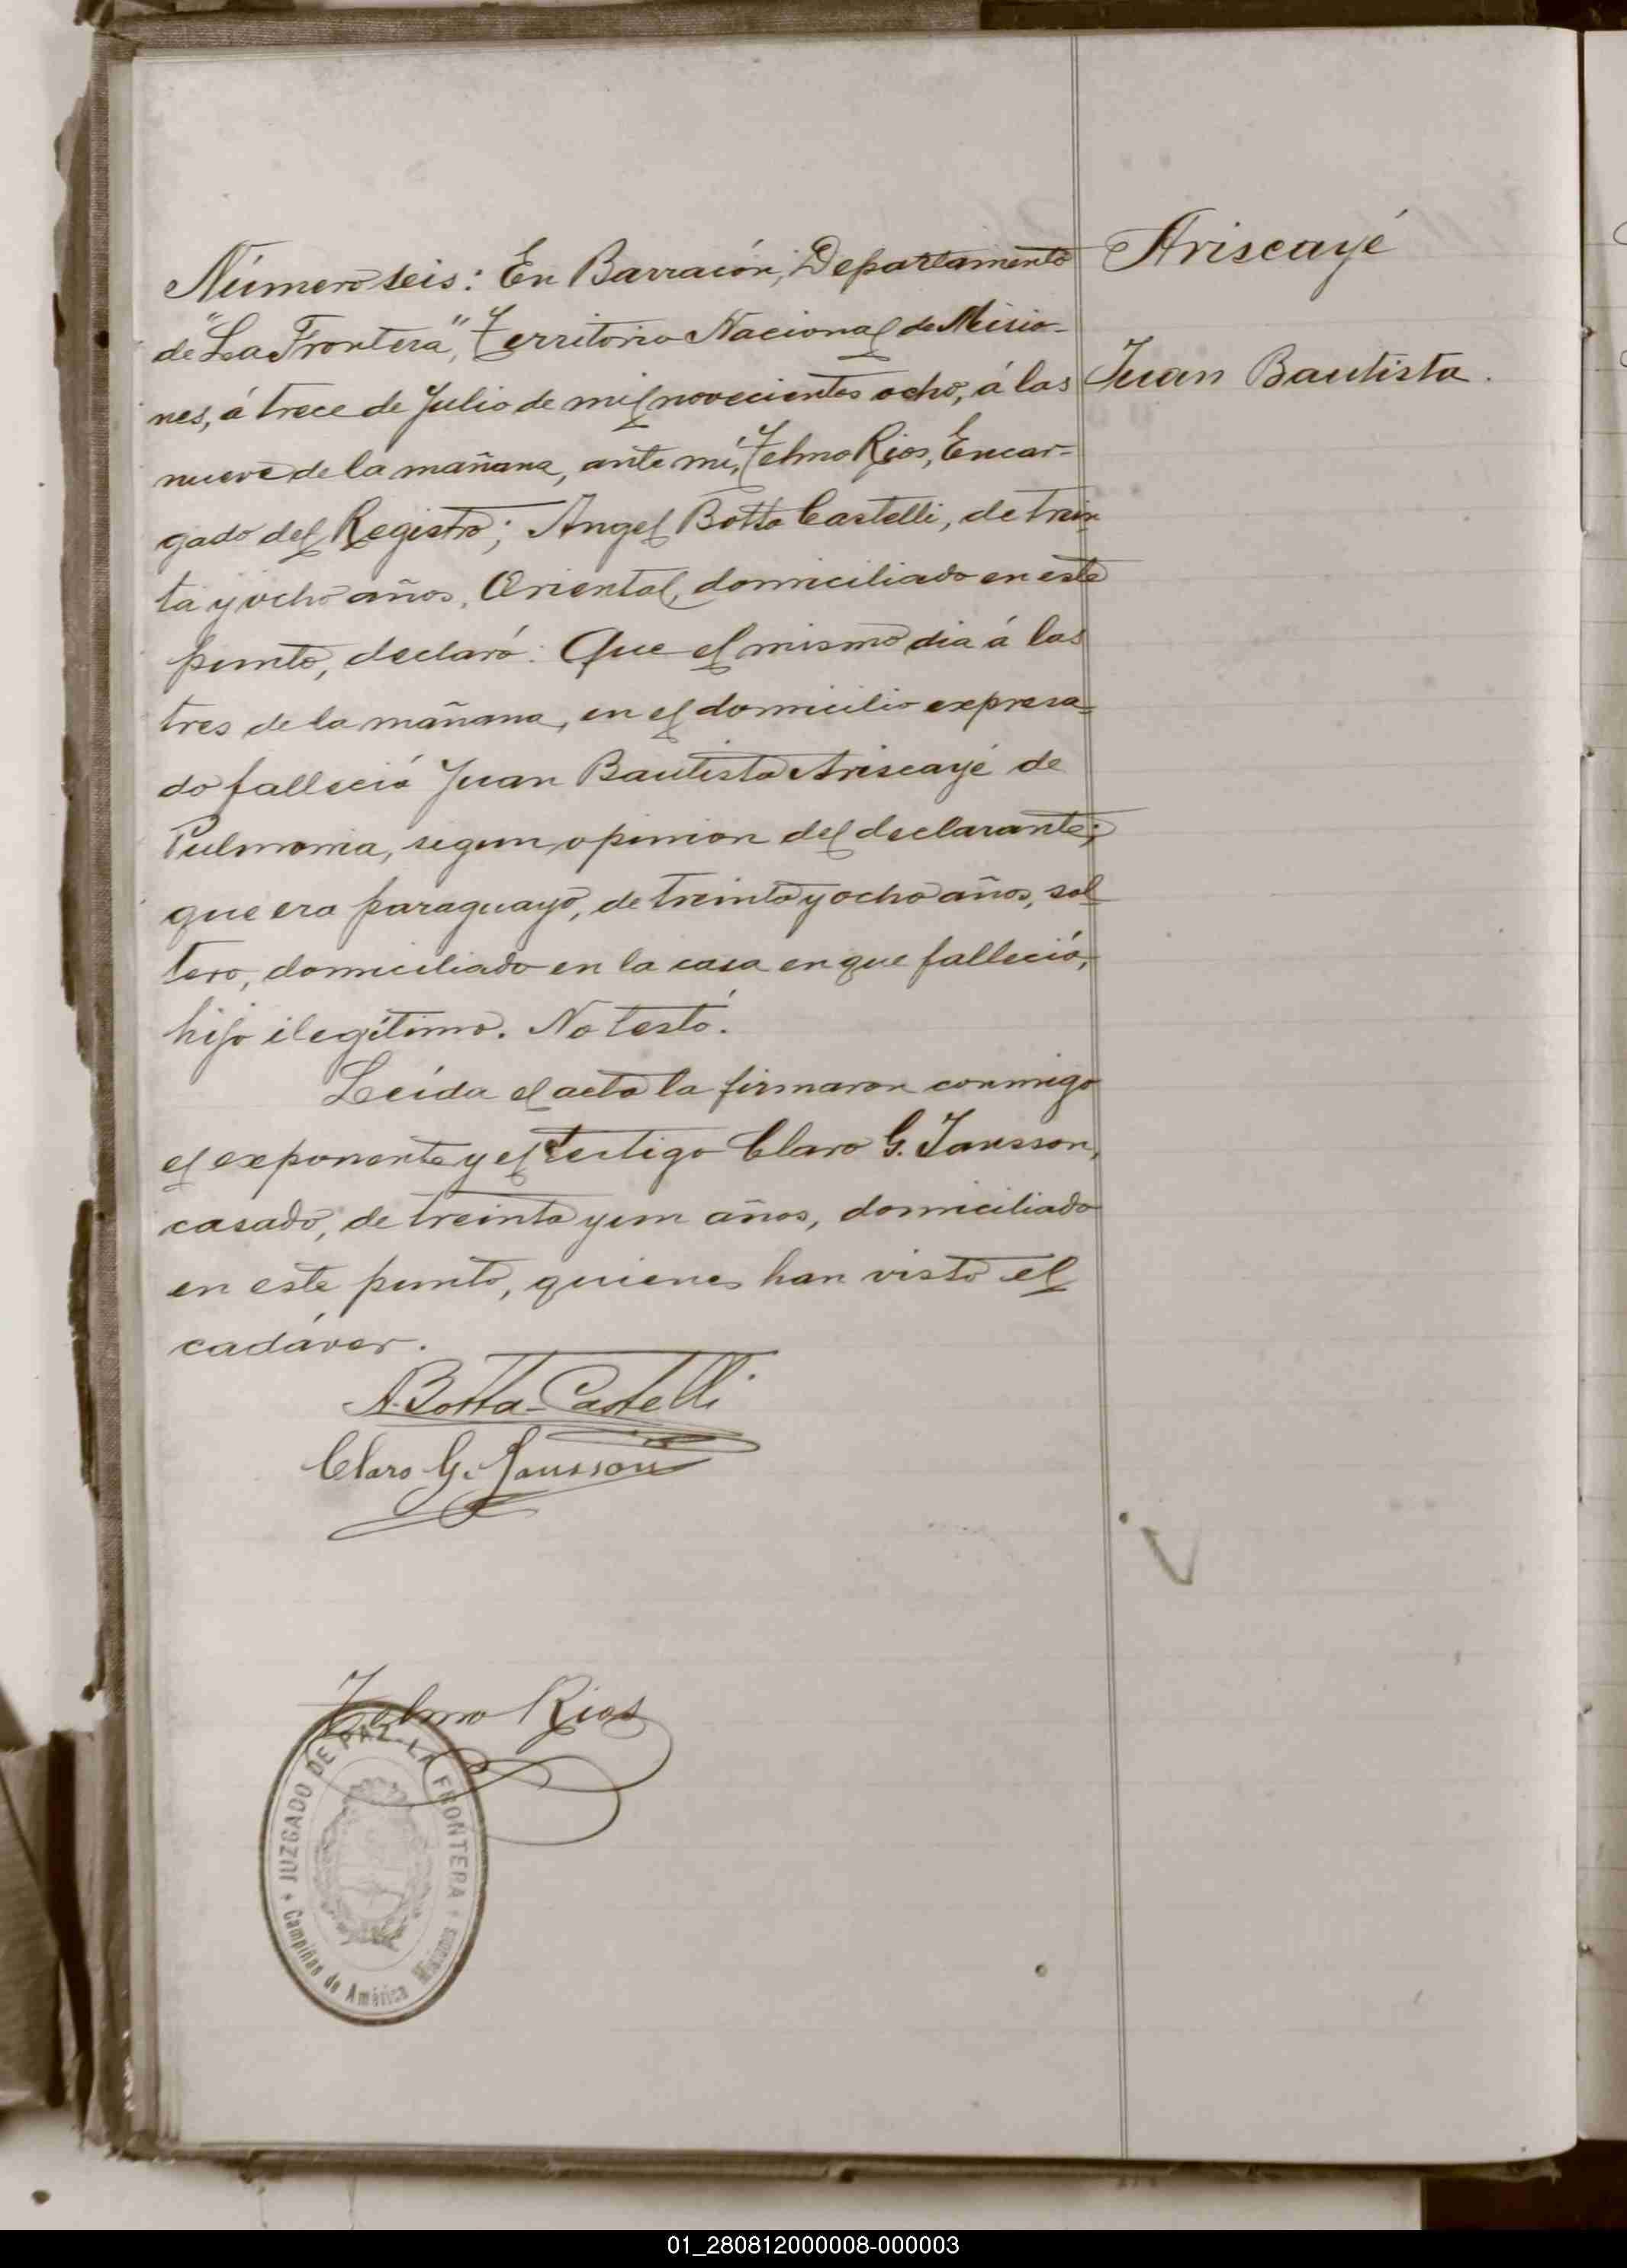 Ariscayé
Juan Bautista.
Número seis: En Barracón, Departamento
de "La Frontera", Territorio Nacional de Misio-
nes, á trece de Julio de mil novecientos ocho, á las
nueve de la mañana, ante mí, Telmo Rios, Encar-
gado del Registro; Angel Botta Castelli, de trein
ta y ocho años, Oriental, domiciliado en este
punto, declaró: Que el mismo dia á las
tres de la mañana, en el domicilio expresa-
do falleció Juan Bautista Ariscayé de
Pulmonia, segun opinion del declarante;
que era paraguayo, de treinta y ocho años, sol
tero, domiciliado en la casa en que falleció,
hijo ilegítimo. No testó.
Leída el acta la firmaron conmigo
el exponente y el testigo Claro G. Jansson,
casado, de treinta y un años, domiciliado
en este punto, quienes han visto el
cadáver.
A. Botta-Castelli
Claro G. Jansson
Telmo Rios
JUZGADO DE PAZ - LA FRONTERA
Campiñas de América Misiones
01_280812000008-000003